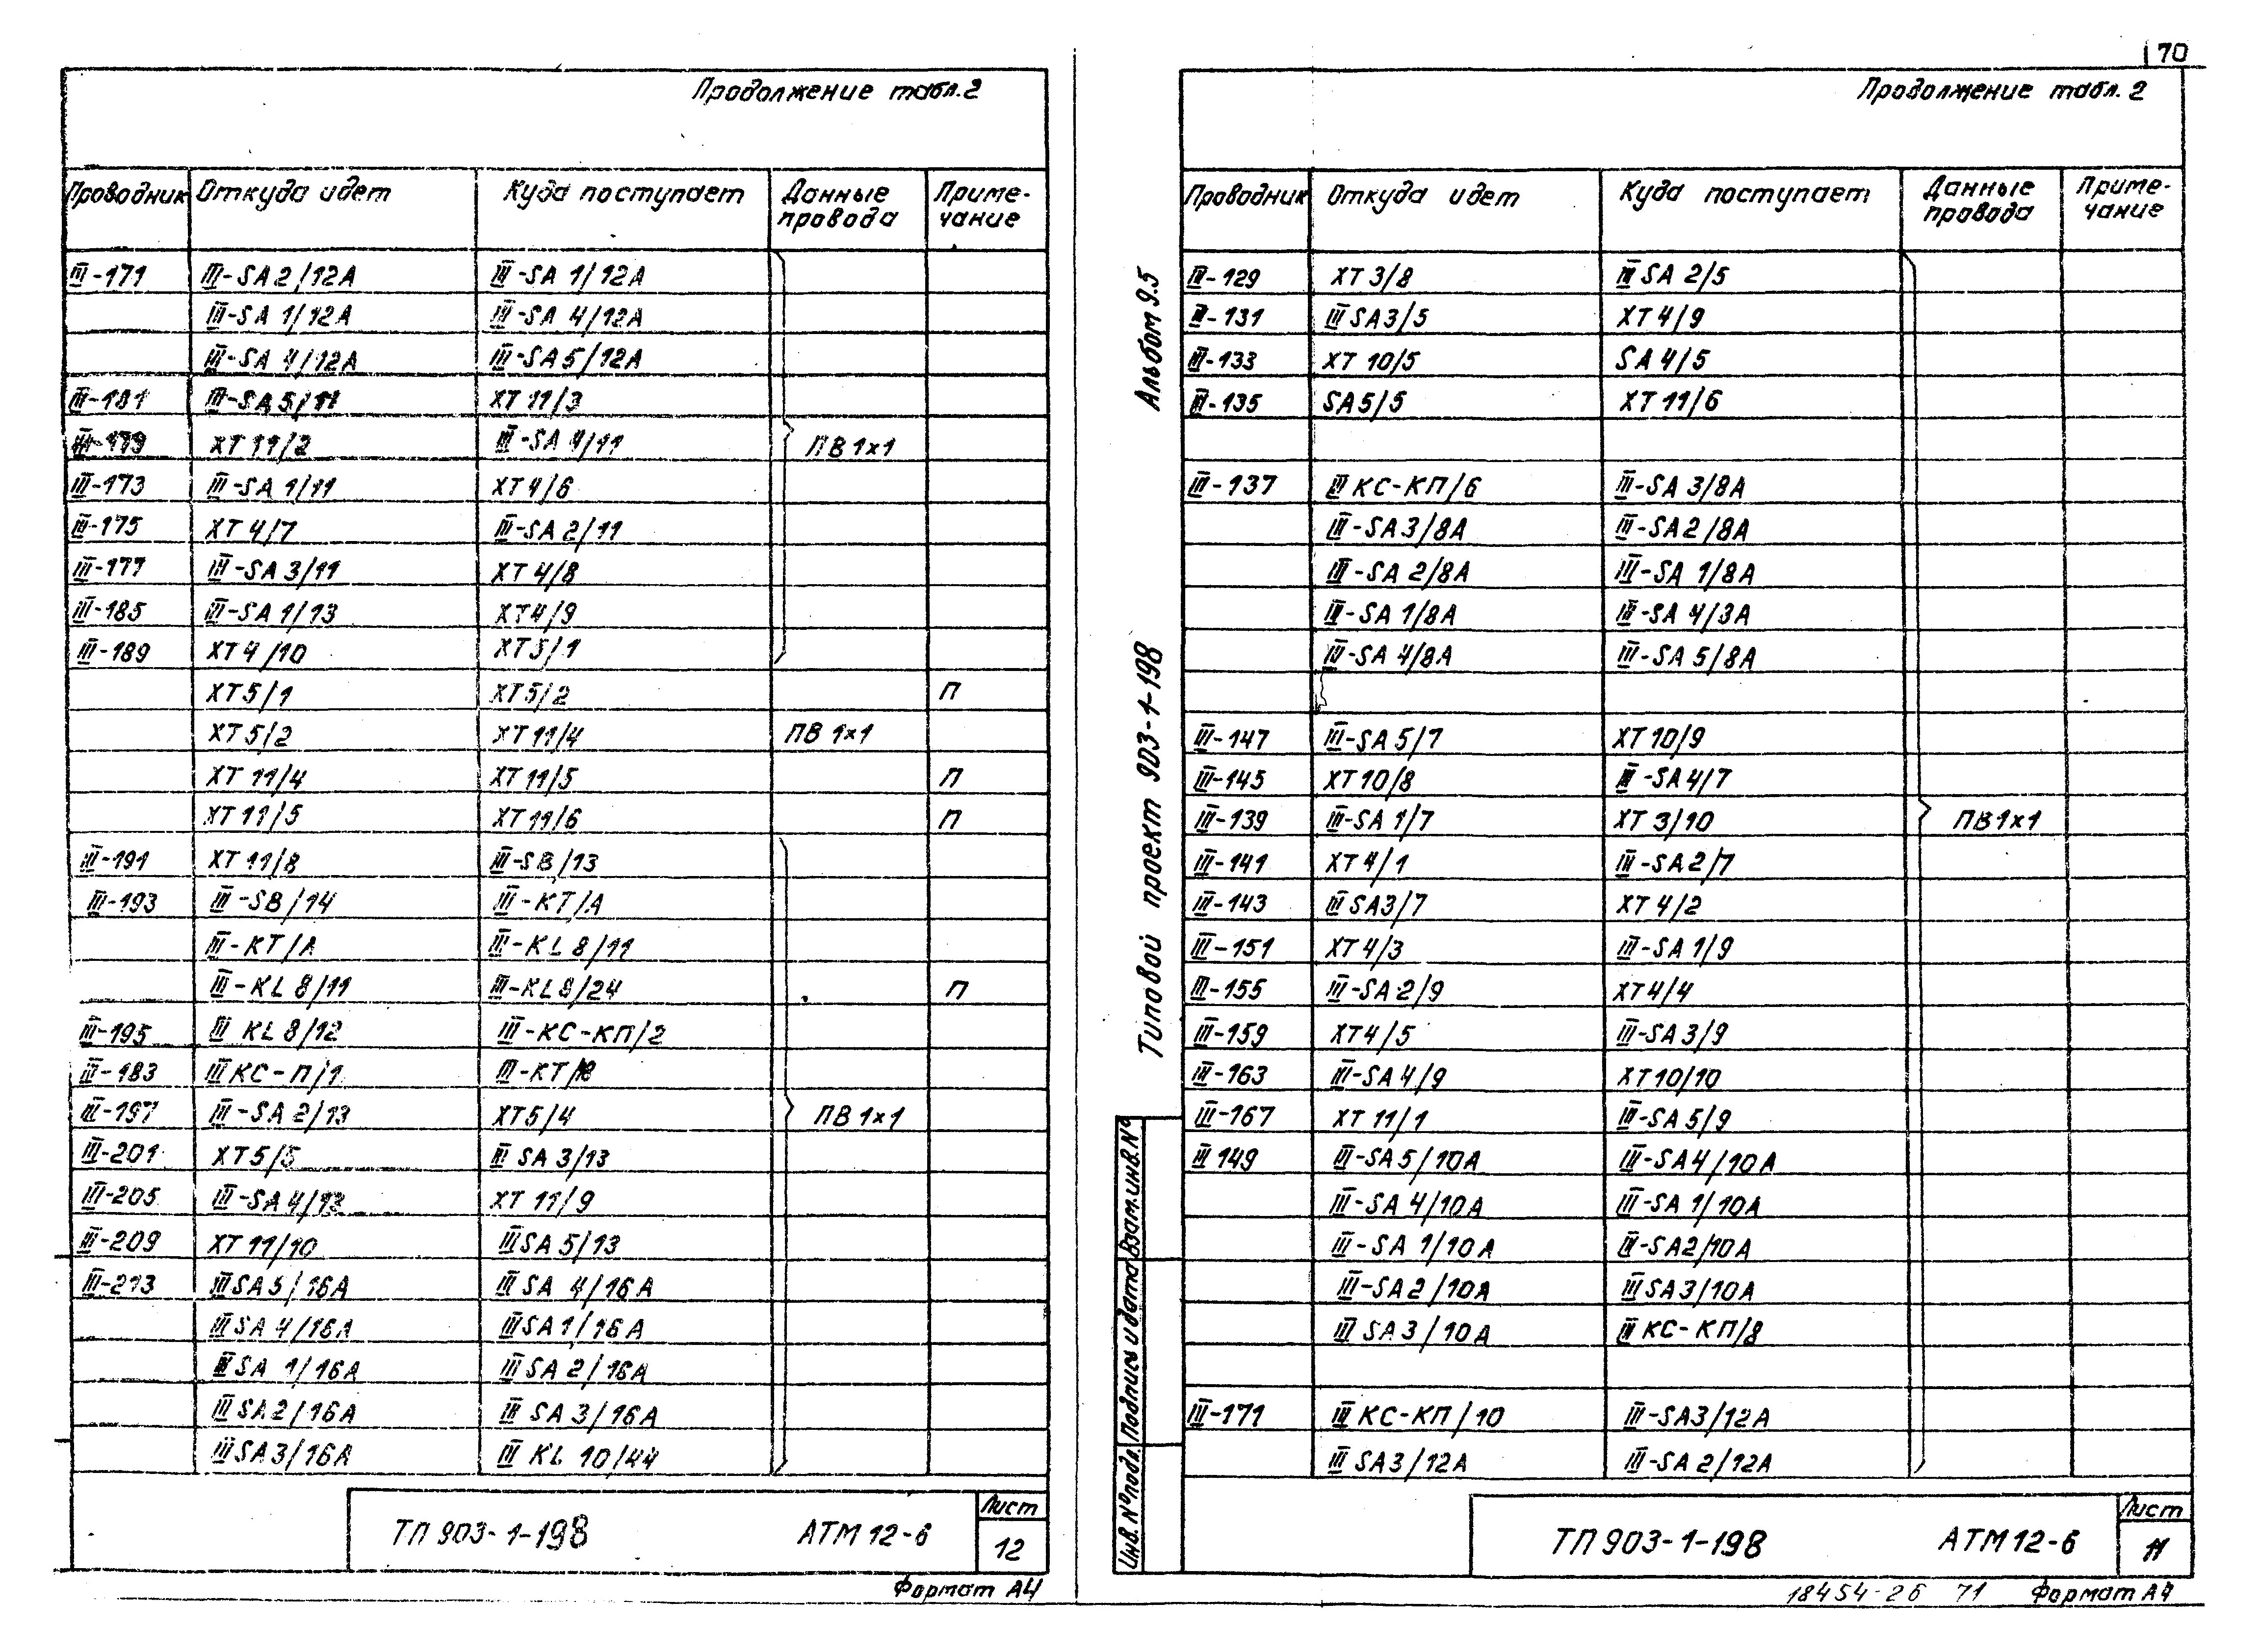 Продолжение табл.2
Проводник Откуда идет Куда поступает Данные провода Примечание
III-171 III-SA2/12А III-SA 1/12А
III-SA 1/12А III-SA 4/12А
III-SA 4/12А III-SA5/12А
III-181 III-SA5/11 XT11/3
III-179 XT11/2 III-SA 4/11 ПВ1×1
III-173 III-SA 1/11 XT4/6
III-175 XT4/7 III-SA2/11
III-177 III-SA3/11 XT4/8
III-185 III-SA 1/13 XT4/9
III-189 XT4/10 XT5/1
XT5/1 XT5/2 П
XT5/2 XT11/4 ПВ 1×1
XT11/4 XT11/5 П
XT11/5 XT11/6 П
III-191 XT11/8 III-SB/13
III-193 III-SB/14 III-KT/А
III-KT/А III-KL 8/11
III-KL 8/11 III-KL8/24 П
III-195 III KL 8/12 III-КС-КП/2
III-183 III КС-П/1 III-KT/
III-197 III-SA 2/13 XT5/4 ПВ1×1
III-201 XT5/5 III SA3/13
III-205 III-SA4/13 XT 11/9
III-209 XT11/10 III SA 5/13
III-213 III SA5/16А III SA 4/16А
III SA 4/16А III SA1/16А
III SA 1/16А III SA 2/16А
III SA2/16А III SA3/16А
III SA3/16А III KL 10/44
ТП 903-1-198 АТМ 12-6 Лист 12
Формат А4
70
Продолжение табл. 2
Проводник Откуда идет Куда поступает Данные провода Примечание
III-129 XT3/8 III SA 2/5
III-131 III SA3/5 XT4/9
III-133 XT 10/5 SA4/5
III-135 SA5/5 XT11/6
III-137 III КС-КП/6 III-SA 3/8А
III-SA3/8А III-SA2/8А
III-SA 2/8А III-SA 1/8А
III-SA 1/8А III-SA 4/3А
III-SA 4/8А III-SA 5/8А
III-147 III-SA5/7 XT10/9
III-145 XT10/8 III-SA4/7
III-139 III-SA 1/7 XT 3/10 ПВ1×1
III-141 XT4/1 III-SA2/7
III-143 III SA3/7 XT 4/2
III-151 XT4/3 III-SA 1/9
III-155 III-SA2/9 XT4/4
III-159 XT4/5 III-SA3/9
III-163 III-SA4/9 XT10/10
III-167 XT 11/1 III-SA5/9
III 149 III-SA5/10А III-SA4/10А
III-SA 4/10А III-SA 1/10А
III-SA 1/10А III-SA2/10А
III-SA2/10А III SA3/10А
III SA3/10А III КС-КП/8
III-171 III КС-КП/10 III-SA3/12А
III SA3/12А III-SA 2/12А
ТП 903-1-198 АТМ12-6 Лист 11
18454-26 71 Формат А4
Типовой проект 903-1-198 Альбом 9.5
Инв. № подл. Подпись и дата Взам.инв.№